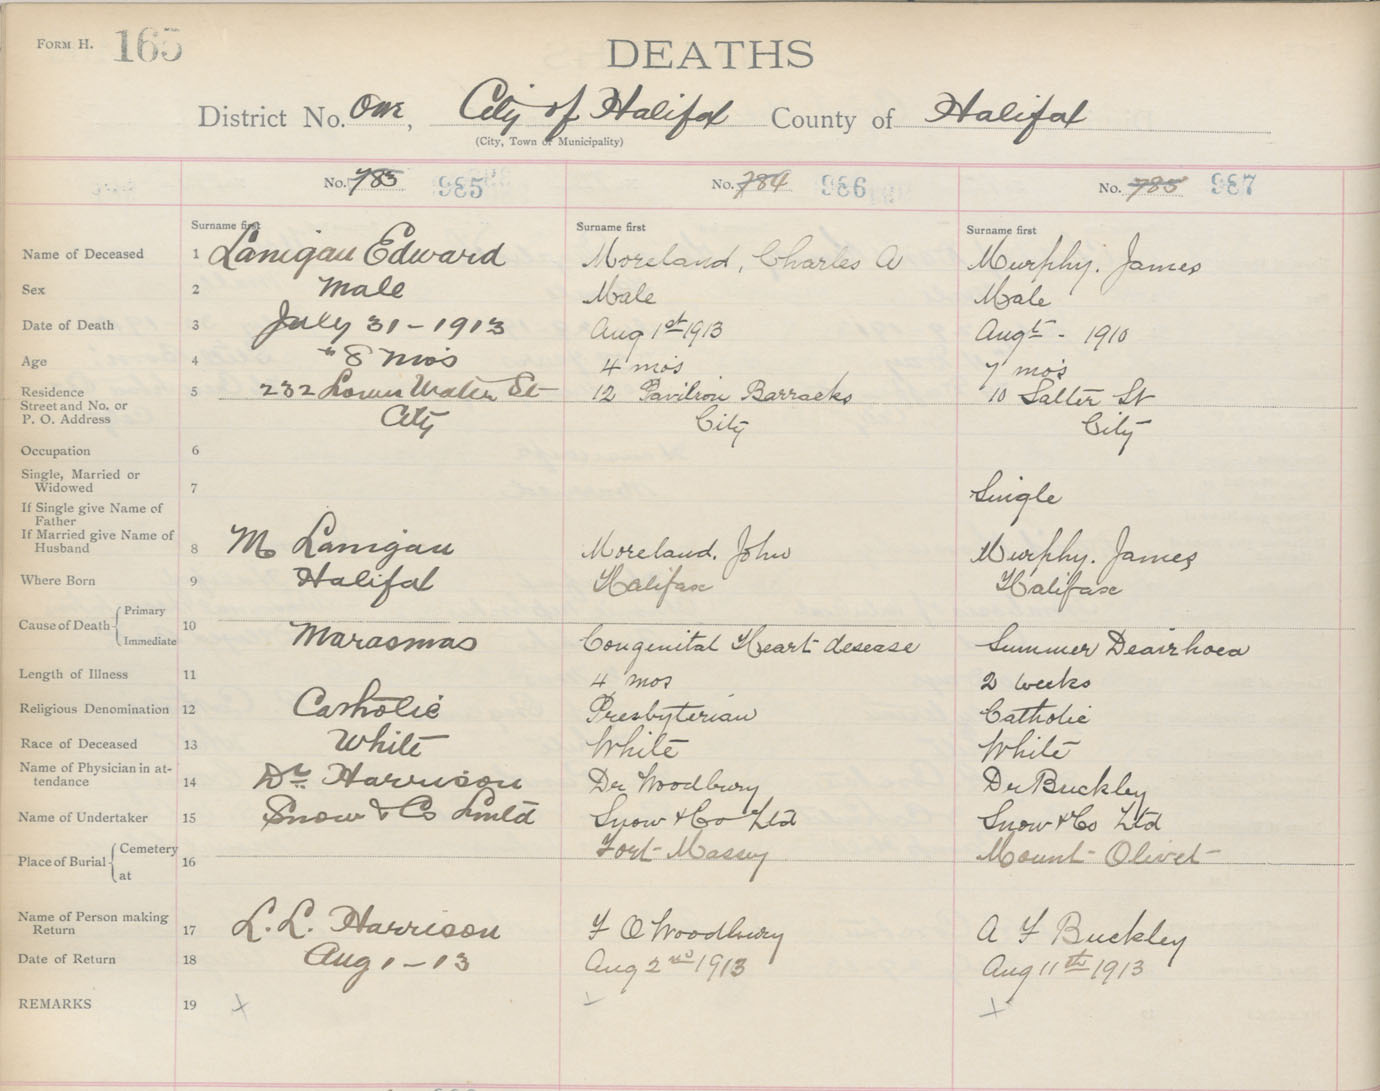 FORM H. 165
DEATHS
District No. One, City of Halifax County of Halifax
(City, Town or Municipality)
No. 783 985 No. 784 986 No. 785 987
Surname first Surname first Surname first
Name of Deceased 1 Lanigan Edward Moreland, Charles A Murphy. James
Sex 2 Male Male Male
Date of Death 3 July 31 - 1913 Aug 1st 1913 Aug - 1910
Age 4 8 mos 4 mos 7 mos
Residence 5 232 Lower Water St 12 Pavilion Barracks 10 Salter St
Street and No. or
P. O. Address City City City
Occupation 6
Single, Married or
Widowed 7 Single
If Single give Name of
Father
If Married give Name of
Husband 8 M Lanigan Moreland. John Murphy. James
Where Born 9 Halifax Halifax Halifax
Primary
Cause of Death 10
Immediate Marasmas Congenital Heart desease Summer Deairhoea
Length of Illness 11 4 mos 2 weeks
Religious Denomination 12 Catholic Presbyterian Catholic
Race of Deceased 13 White White White
Name of Physician in at-
tendance 14 Dr Harrison Dr Woodbury Dr Buckley
Name of Undertaker 15 Snow & Co Lmtd Snow & Co Ltd Snow & Co Ltd
Cemetery Fort Massey Mount Olivet
Place of Burial 16
at
Name of Person making
Return 17 L. L. Harrison F O Woodbury A F Buckley
Date of Return 18 Aug 1 - 13 Aug 2nd 1913 Aug 11th 1913
REMARKS 19 x x